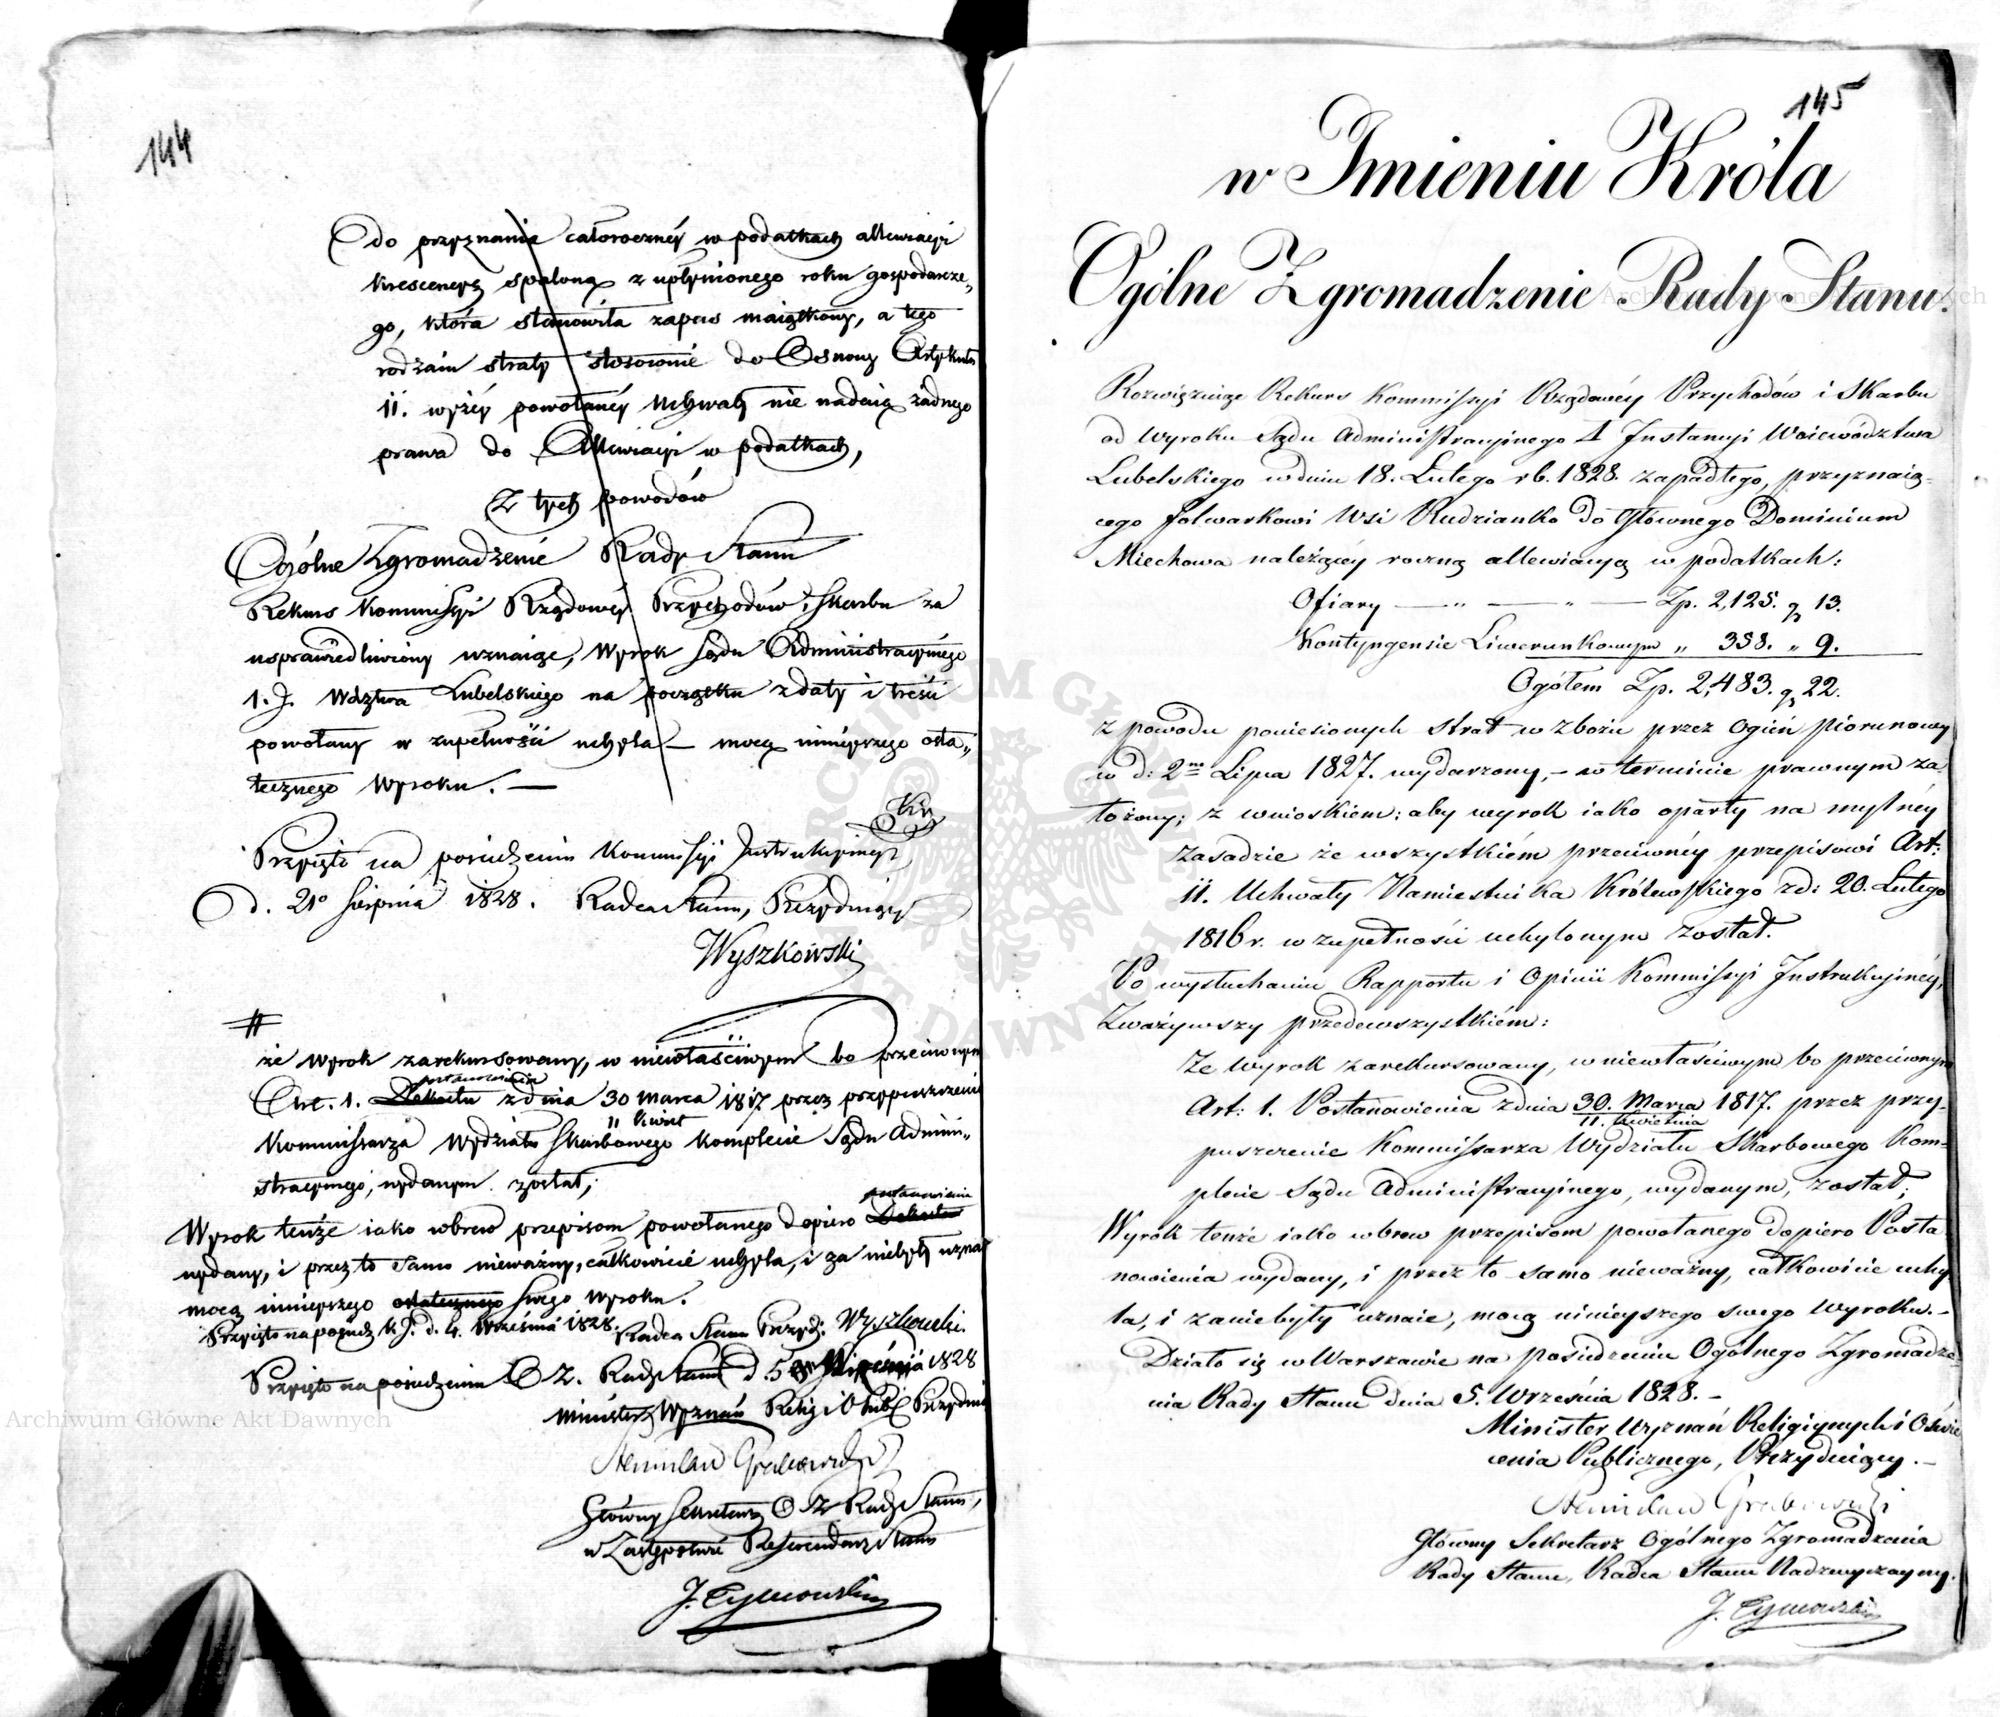 144
do przyznania całoroczney w podatkach allewiacyi
krescencyą spaloną z upłynionego roku gospodarcze„
go, która stanowiła zapas maiątkowy, a tego
rodzaiu straty stosownie do Osnowy Artykułu
11. wyżey powołaney Uchwały nie nadaią żadnego
prawa do Allewiacyi w podatkach,
Z tych powodów
Ogólne Zgromadzenie Rady Stanu
Rekurs Kommissyi Rządowey Przychodów i Skarbu za
usprawiedliwiony uznaiąc, Wyrok Sądu Administracyinego
1. J. Wdztwa Lubelskiego na początku z daty i treści
powołany w zupełności uchyla — mocą ninieyszego osta„
tecznego Wyroku. —
Przyięto na posiedzeniu Kommissyi Instrukcyiney
d. 21º Sierpnia 1828. Radca Stanu, Prezyduiący
Wyszkowski
#
że Wyrok zarekursowany, w niewłaściwym bo przeciwnym
postanowienia
Art. 1. Dekretu z dnia 30 Marca 1817 przez przypuszczenie
11 Kwiet
Kommissarza Wydziału Skarbowego komplecie Sądu Admini„
stracyinego, wydanym został;
postanowienia
Wyrok tenże iako wbrew przepisom powołanego dopiero Dekretu
wydany, i przez to samo nieważny, całkowicie uchyla, i za niebyły uznaie
mocą ninieyszego ostatecznego swego Wyroku.
Przyięto na posiedz. K. J. d. 4. Września 1828. Radca Stanu Prezyd: Wyszkowski.
Przyięto na posiedzeniu O Z. Rady Stanu d. 5 Września 1828
Minister Wyznań Relig i O Publ Prezyduią
Stanisław Grabowski
Główny Sekretarz O Z Rady Stanu,
w Zastępstwie Referendarz Stanu
J. Tymowski
145
w Imieniu Króla
Ogólne Zgromadzenie Rady Stanu.
Rozwiązuiąc Rekurs Kommissyi Rządowéy Przychodów i Skarbu
od Wyroku Sądu Administracyinego I Instancyi Woiewództwa
Lubelskiego w dniu 18. Lutego rb. 1828. zapadłego, przyznaią-
cego folwarkowi Wsi Rudzianko do Głównego Dominium
Miechowa należącéy roczną allewiacyą w podatkach:
Ofiary — „ — „ — Zp. 2,125. g 13.
Kontyngensie Liwerunkowym „ 358. „ 9.
Ogółem Zp. 2,483. g 22.
z powodu poniesionych strat w zbożu przez Ogień piorunowy
w d: 2go Lipca 1827. wydarzony, – w terminie prawnym za-
łożony; z wnioskiem: aby wyrok iako oparty na mylnéy
zasadzie ze wszystkiém przeciwnéy przepisowi Art:
11. Uchwały Namiestnika Królewskiego z d: 20. Lutego
1816 r. w zupełności uchylonym został.
Po wysłuchaniu Rapportu i Opinii Kommissyi Instrukcyinéy,
Zważywszy przedewszystkiém:
Że Wyrok zarekursowany, w niewłaściwym bo przeciwnym
Art: 1. Postanowienia z dnia 30. Marca 1817. przez przy-
11. Kwietnia
puszczenie Kommissarza Wydziału Skarbowego Kom-
plecie Sądu Administracyinego, wydanym, został;
Wyrok tenże iako wbrew przepisom powołanego dopiero Posta-
nowienia wydany, i przez to samo nieważny, całkowicie uchy-
la, i za niebyły uznaie, mocą ninieyszego swego Wyroku. –
Działo się w Warszawie na posiedzeniu Ogólnego Zgromadze-
nia Rady Stanu dnia 5. Września 1828. –
Minister Wyznań Religiynych i Oświe-
cenia Publicznego, Prezyduiący. –
Stanisław Grabowski
Główny Sekretarz Ogólnego Zgromadzenia
Rady Stanu, Radca Stanu Nadzwyczayny.
J. Tymowski
Archiwum Główne Akt Dawnych
Archiwum Główne Akt Dawnych
ARCHIWUM GŁÓWNE AKT DAWNYCH